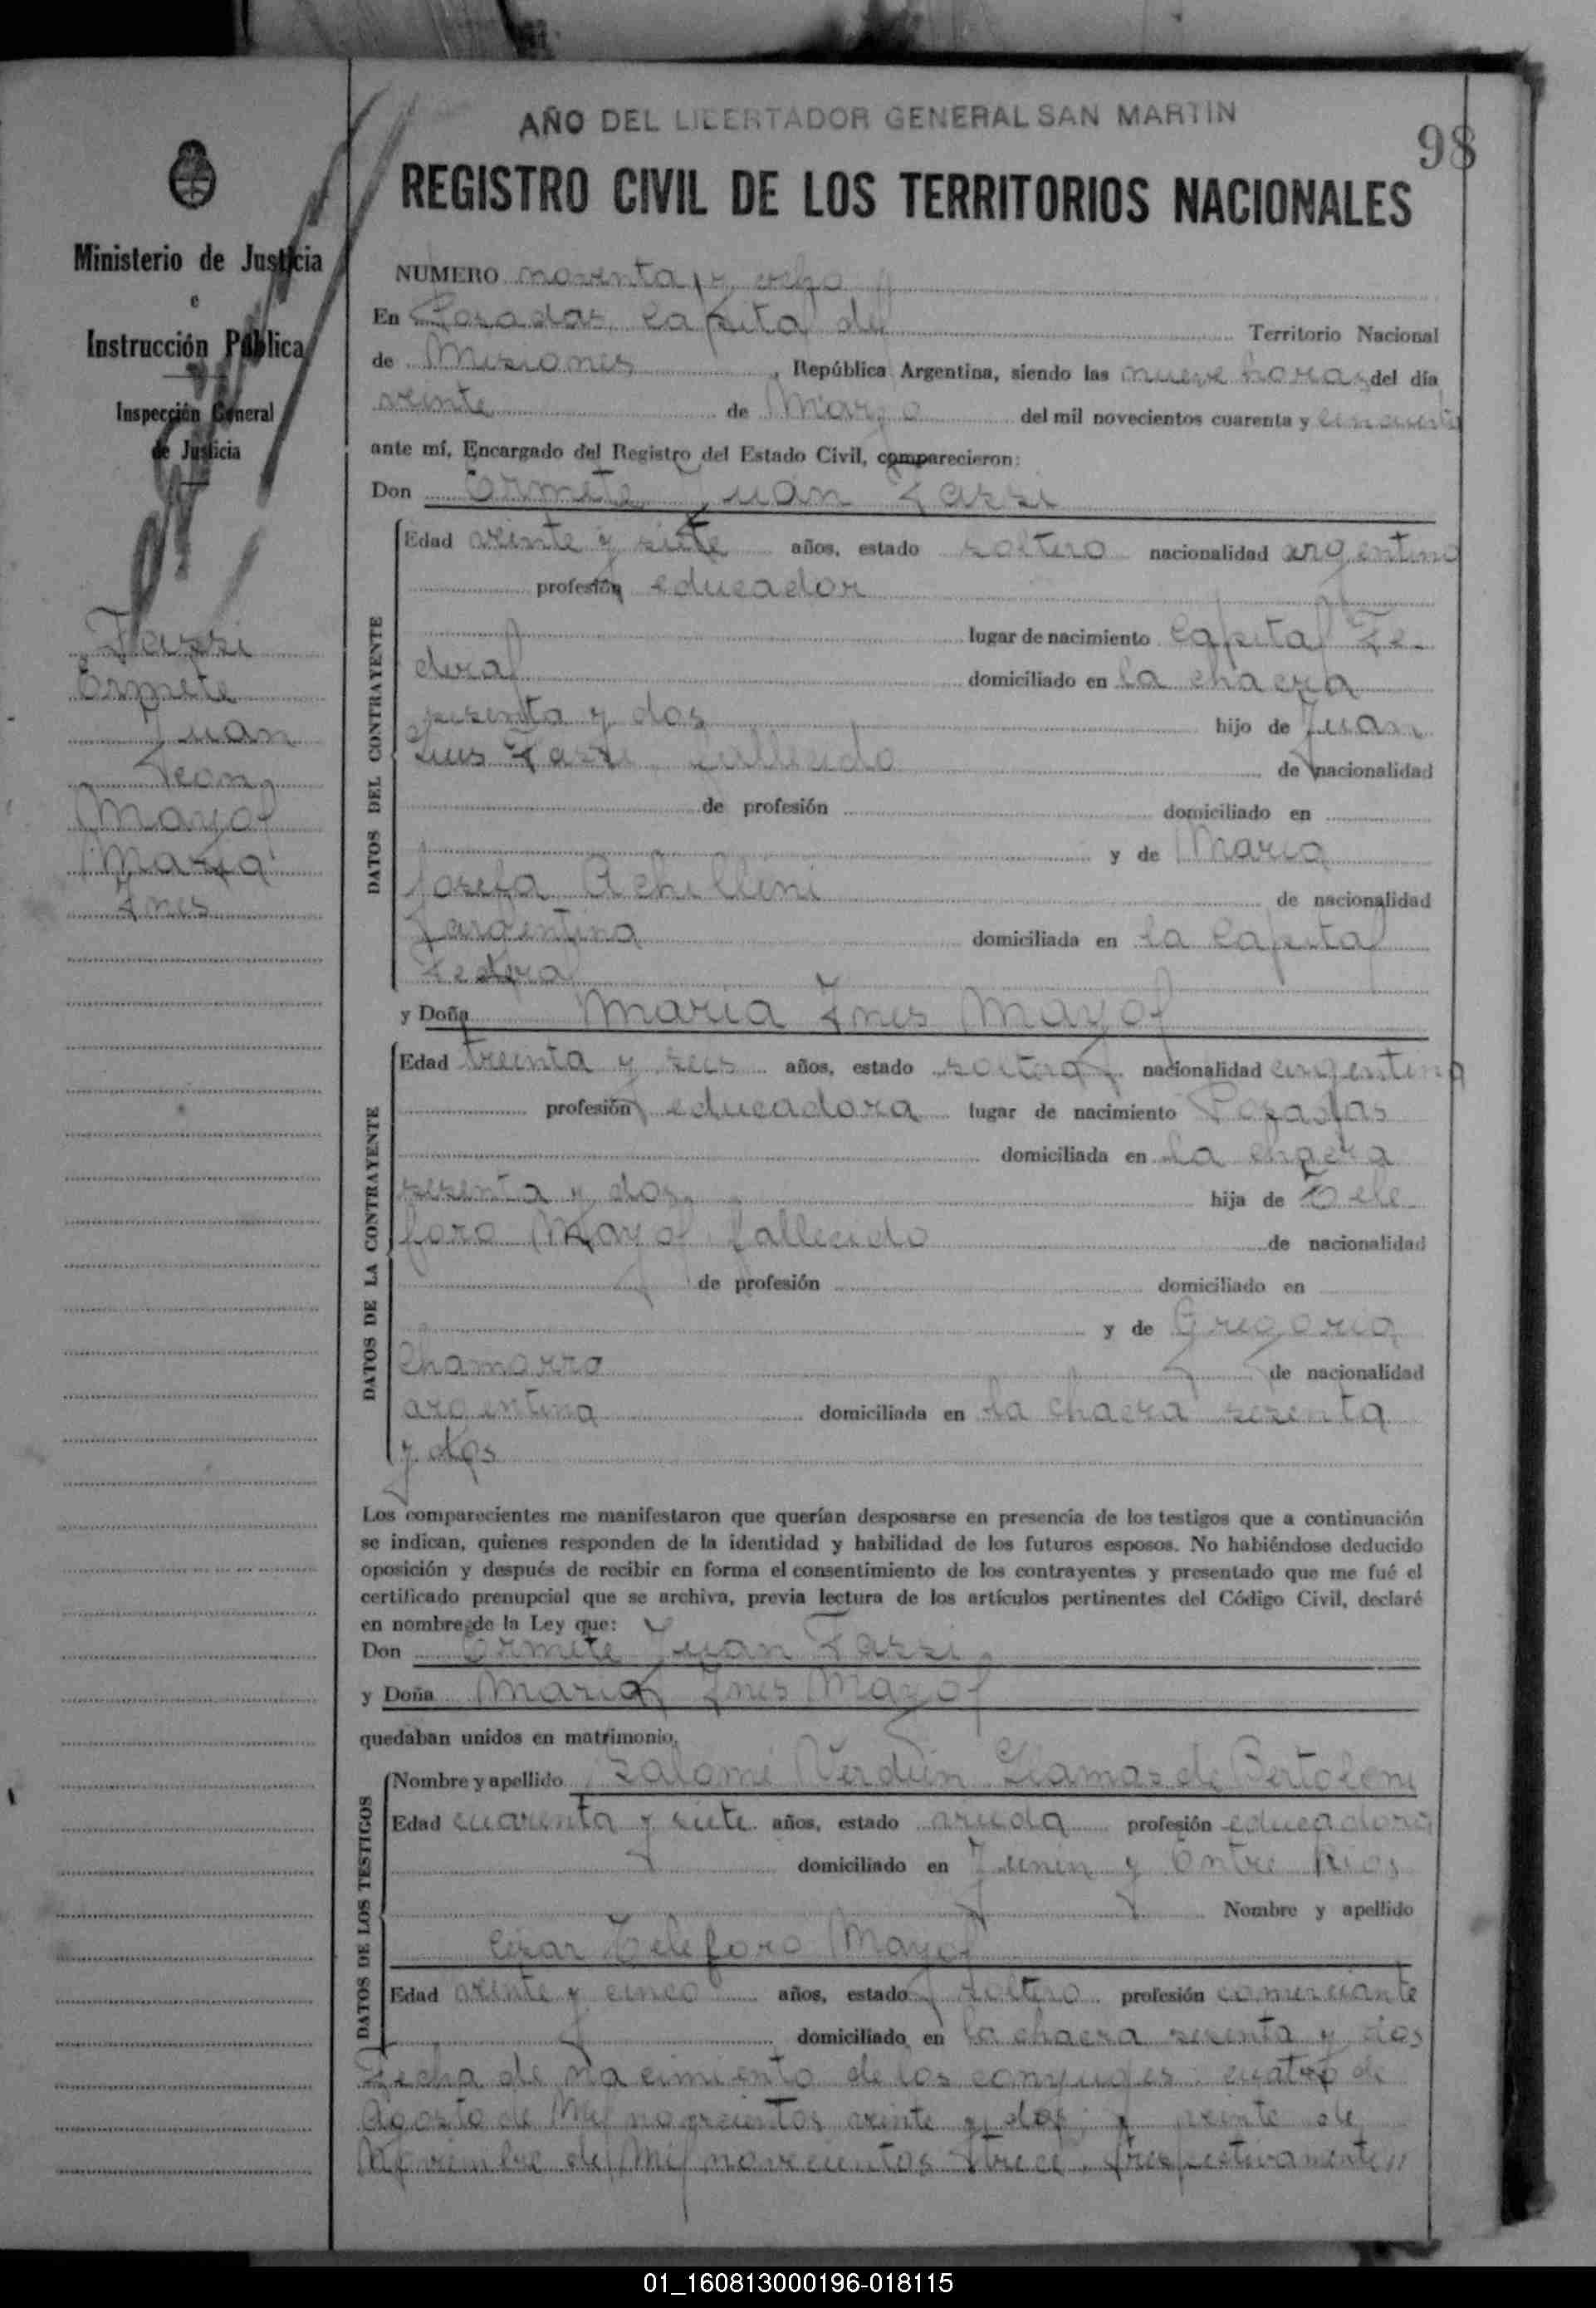 AÑO DEL LIBERTADOR GENERAL SAN MARTIN
98
REGISTRO CIVIL DE LOS TERRITORIOS NACIONALES
Ministerio de Justicia
e
Instrucción Pública
Inspección General
de Justicia
Fassi
Ermete
Juan
con
Mayol
Maria
Ines
NUMERO noventa y ocho
En Posadas, Capital del Territorio Nacional
de Misiones, República Argentina, siendo las nueve horas del día
veinte de Marzo del mil novecientos cuarenta y cincuenta
ante mí, Encargado del Registro del Estado Civil, comparecieron:
Don Ermete Juan Fassi
DATOS DEL CONTRAYENTE
Edad veinte y siete años, estado soltero nacionalidad argentino
profesión educador
lugar de nacimiento Capital Fe-
deral domiciliado en la chacra
sesenta y dos hijo de Juan
Luis Fassi, fallecido de nacionalidad
de profesión domiciliado en
y de Maria
Josefa Achilleni de nacionalidad
argentina domiciliada en la Capital
Federal
y Doña Maria Ines Mayol
DATOS DE LA CONTRAYENTE
Edad treinta y seis años, estado soltera nacionalidad argentina
profesión educadora lugar de nacimiento Posadas
domiciliada en la chacra
sesenta y dos, hija de Tele
foro Mayol, fallecido de nacionalidad
de profesión domiciliado en
y de Gregoria
Chamorro de nacionalidad
argentina domiciliada en la chacra sesenta
y dos
Los comparecientes me manifestaron que querían desposarse en presencia de los testigos que a continuación
se indican, quienes responden de la identidad y habilidad de los futuros esposos. No habiéndose deducido
oposición y después de recibir en forma el consentimiento de los contrayentes y presentado que me fué el
certificado prenupcial que se archiva, previa lectura de los artículos pertinentes del Código Civil, declaré
en nombre de la Ley que:
Don Ermete Juan Fassi
y Doña Maria Ines Mayol
quedaban unidos en matrimonio.
DATOS DE LOS TESTIGOS
Nombre y apellido Salomé Verdún Llamas de Bertoleni
Edad cuarenta y siete años, estado viuda profesión educadora
domiciliado en Junin y Entre Rios
Nombre y apellido
Cesar Teleforo Mayol
Edad veinte y cinco años, estado soltero profesión comerciante
domiciliado en la chacra sesenta y dos
Fecha de nacimiento de los conyuges: cuatro de
Agosto de Mil novecientos veinte y dos y veinte de
Noviembre de Mil novecientos trece, respectivamente//
01_160813000196-018115